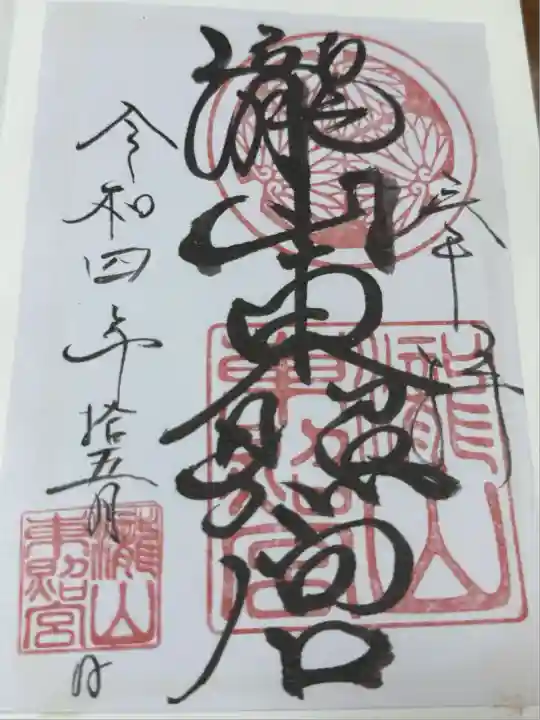 瀧山東照宮
瀧山東照宮
令和四年拾五月
瀧山東照宮
日